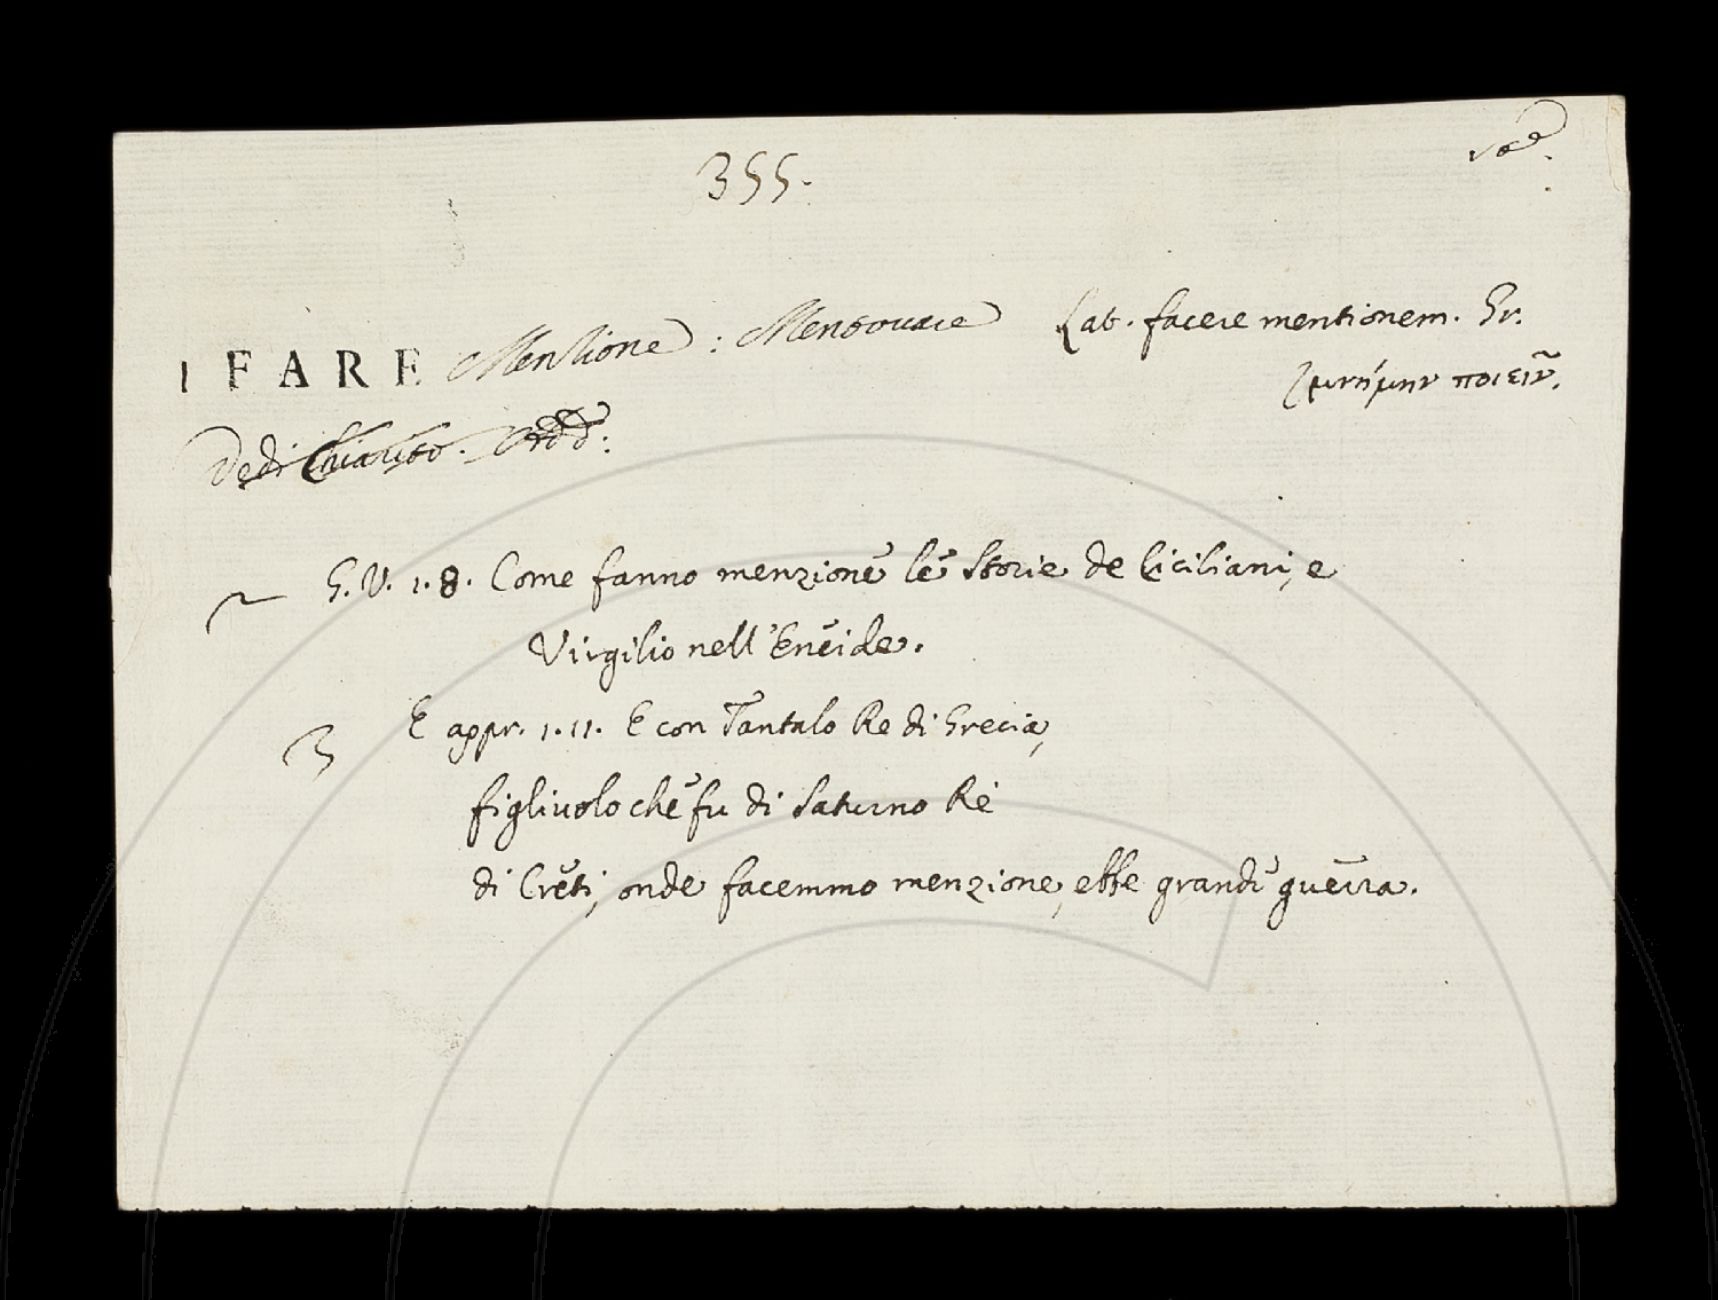 355.
1 FARE Menzione: Mentouare Lat. facere mentionem. Gr.
μνήμην ποιεῖν.
Vedi
2 G. V. 1. 8. Come fanno menzione le Storie de Ciciliani, e
Virgilio nell'Eneide.
3 E appr. 1. 11. E con Tantalo Re di Grecia,
figliuolo che fu di Saturno Re
di Creti, onde facemmo menzione, ebbe grandi guerra.